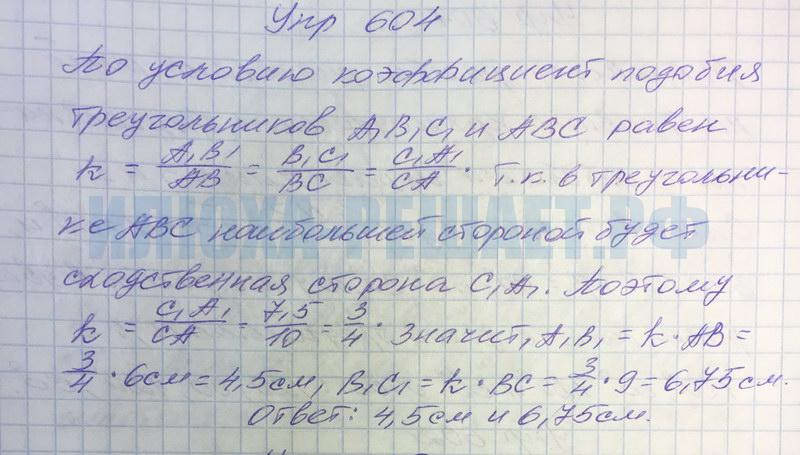 Упр 604
По условию коэффициент подобия
треугольников A₁B₁C₁ и ABC равен
k = A₁B₁/AB = B₁C₁/BC = C₁A₁/CA. Т.к. в треугольни-
ке ABC наибольшей стороной будет
ИЛЮХА-РЕШАЕТ.РФ
сходственная сторона C₁A₁. Поэтому
k = C₁A₁/CA = 7,5/10 = 3/4. Значит, A₁B₁ = k · AB =
3/4 · 6см = 4,5см, B₁C₁ = k · BC = 3/4 · 9 = 6,75см.
Ответ: 4,5см и 6,75см.